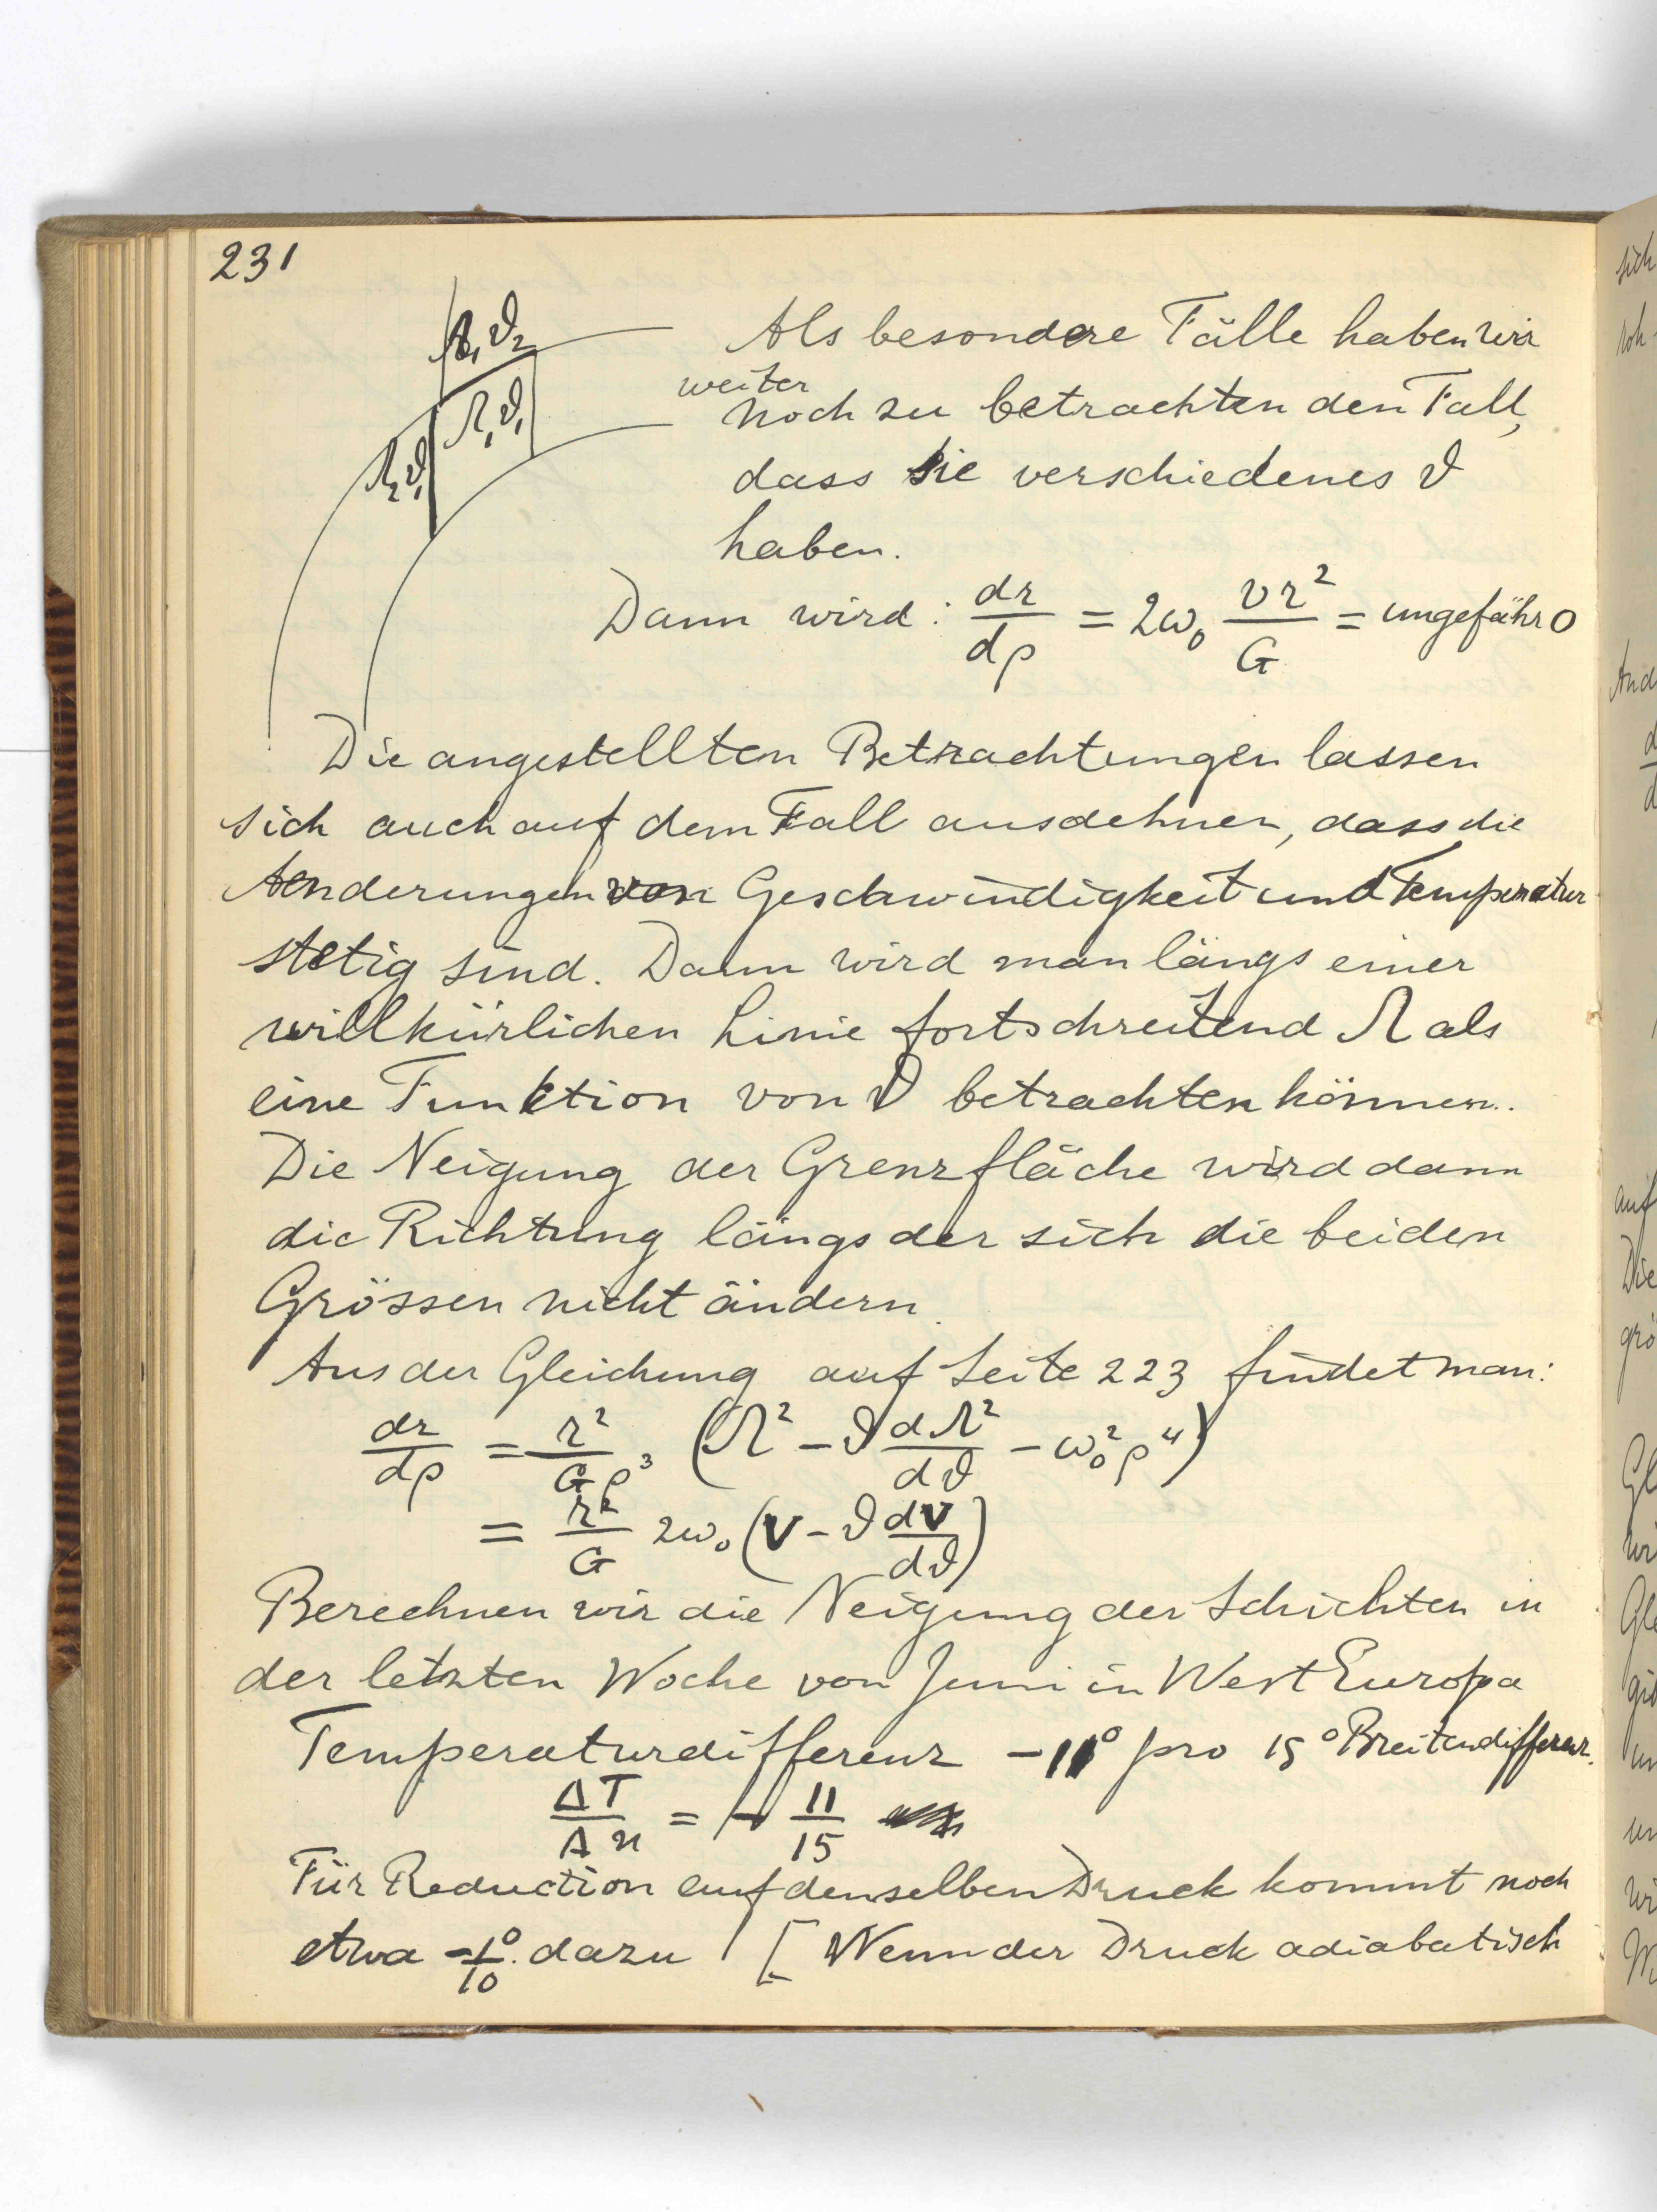 231
Ω₁ϑ₂
Ω₁ϑ₁
Ω₂ϑ₁
Als besondere Fälle haben wir
weiter
noch zu betrachten den Fall,
dass sie verschiedenes ϑ
haben.
Dann wird: dr/dρ = 2ω₀ vr²/G = ungefähr 0
Die angestellten Betrachtungen lassen
sich auch auf dem Fall ausdehnen, dass die
Aenderungen von Geschwindigkeit und Temperatur
stetig sind. Dann wird man längs einer
willkürlichen Linie fortschreitend Ω als
eine Funktion von ϑ betrachten können.
Die Neigung der Grenzfläche wird dann
die Richtung längs der sich die beiden
Grössen nicht ändern.
Aus der Gleichung auf Seite 223 findet man:
dr/dρ = r²/Gρ³ (Ω² − ϑ dΩ²/dϑ − ω₀²ρ⁴)
= r²/G 2ω₀ (v − ϑ dv/dϑ)
Berechnen wir die Neigung der Schichten in
der letzten Woche von Juni in West Europa
Temperaturdifferenz −11° pro 15° Breitendifferenz.
ΔT/Δn = − 11/15
Für Reduction auf denselben Druck kommt noch
etwa −1°/10. dazu [Wenn der Druck adiabatisch